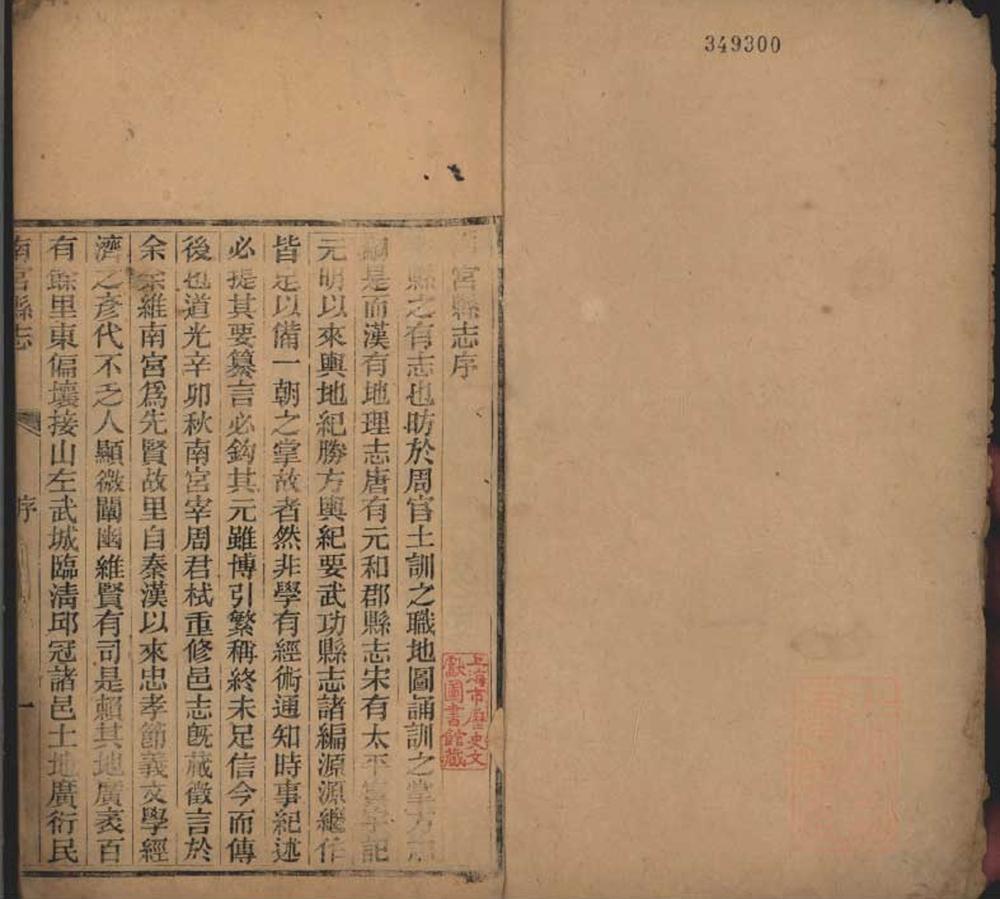 349300
宮縣志序
縣之有志也昉於周官土訓之職地圖誦訓之掌方志
是而漢有地理志唐有元和郡縣志宋有太平寰宇記
元明以來輿地紀勝方輿紀要武功縣志諸編源源繼作
皆足以備一朝之掌故者然非學有經術通知時事紀述
必提其要纂言必鈎其元雖博引繁稱終未足信今而傳
後也道光辛卯秋南宮宰周君栻重修邑志旣蕆徵言於
余余維南宮爲先賢故里自秦漢以來忠孝節義文學經
濟之彥代不乏人顯微闡幽維賢有司是賴其地廣袤百
有餘里東偏壤接山左武城臨淸邱冠諸邑土地廣衍民
南宮縣志 序 一
上海市歷史文獻圖書館藏